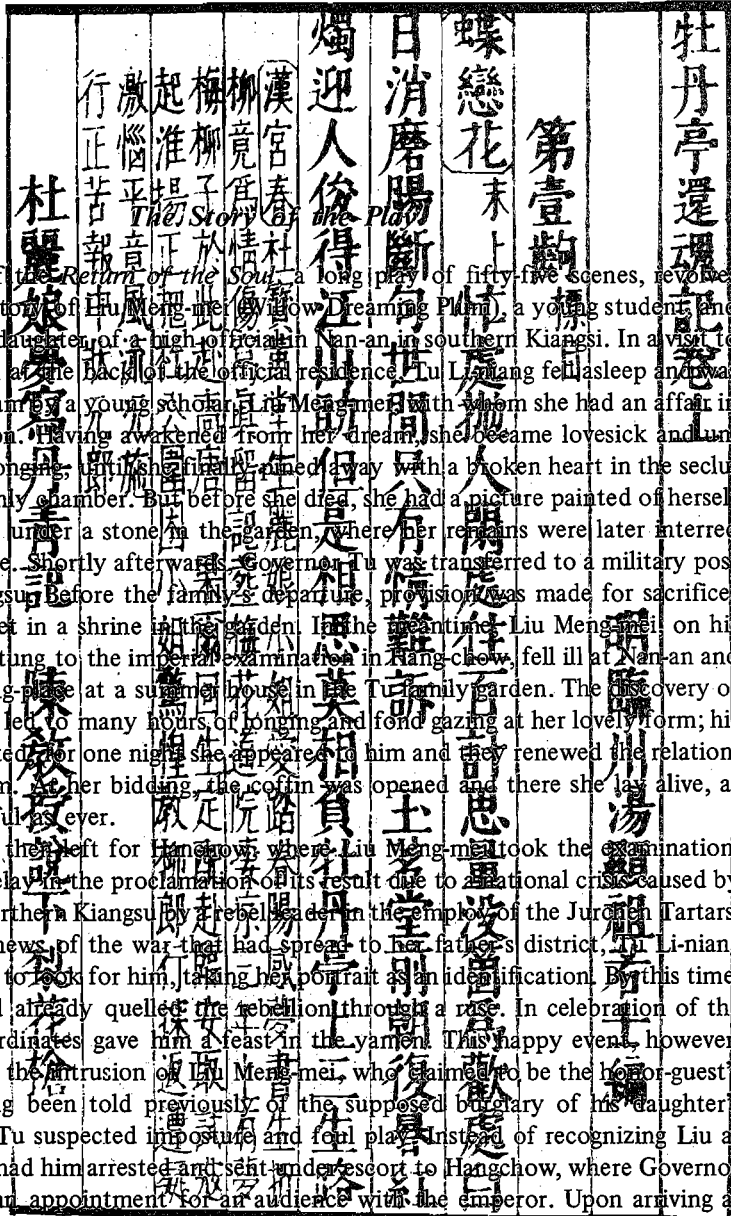 牡丹亭還魂記卷上
明臨川湯顯祖若士編
第壹齣 標目
蝶戀花 末上 忙處拋人閒處住百計思量沒箇為歡處白
日消磨腸斷句世間只有情難訴 玉茗堂前朝復暮紅
燭迎人俊得江山助但是相思莫相負牡丹亭上三生路
漢宮春 杜寶黃堂生麗娘小姐愛踏春陽感夢書生折
柳竟為情傷寫真留記葬梅花道院淒涼三年上有夢
梅柳子於此赴高唐 果爾回生定配赴臨安取試寇
起淮揚正把杜公圍困小姐驚惶教柳郎行探返遭疑
激惱平章風流況施
行正苦報中狀元郎
杜麗娘夢寫丹青記 陳教授說下梨花槍
The Story of the Play
f the Return of the Soul, a long play of fifty-five scenes, revolve
tory of Liu Meng-mei (Willow Dreaming Plum), a young student, and
daughter of a high official in Nan-an in southern Kiangsi. In a visit to
at the back of the official residence, Tu Li-niang fell asleep and was
um by a young scholar, Liu Meng-mei, with whom she had an affair in
on. Having awakened from her dream, she became lovesick and un
onging, until she finally pined away with a broken heart in the seclu
nly chamber. But before she died, she had a picture painted of hersel
under a stone in the garden, where her remains were later interred
e. Shortly afterwards, Governor Tu was transferred to a military pos
gsu. Before the family's departure, provision was made for sacrifice
et in a shrine in the garden. In the meantime, Liu Meng-mei, on hi
tung to the imperial examination in Hang-chow, fell ill at Nan-an and
g-place at a summer house in the Tu family garden. The discovery o
led to many hours of longing and fond gazing at her lovely form; hi
ted, for one night she appeared to him and they renewed the relation
m. At her bidding, the coffin was opened and there she lay alive, a
ful as ever.
then left for Hangchow, where Liu Meng-mei took the examination
elay in the proclamation of its result due to a national crisis caused by
orthern Kiangsu by a rebel leader in the employ of the Jurchen Tartars
news of the war that had spread to her father's district, Tu Li-nian
to look for him, taking her portrait as an identification. By this time
d already quelled the rebellion through a ruse. In celebration of th
rdinates gave him a feast in the yamen. This happy event, however
the intrusion of Liu Meng-mei, who claimed to be the honor-guest'
g been told previously of the supposed burglary of his daughter'
Tu suspected imposture and foul play. Instead of recognizing Liu a
had him arrested and sent under escort to Hangchow, where Governo
an appointment for an audience with the emperor. Upon arriving a